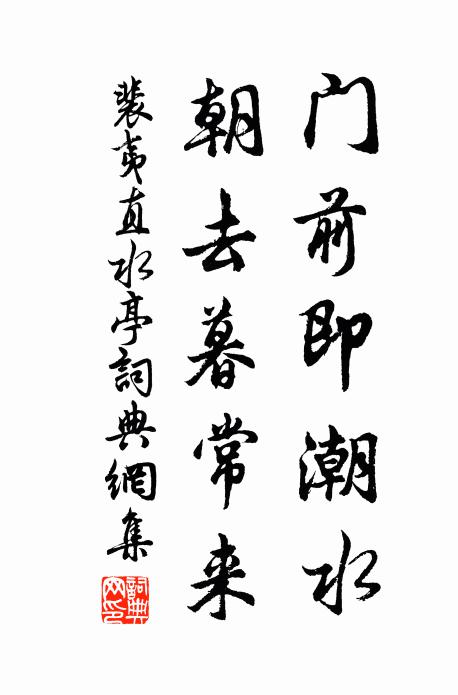 门前即潮水
朝去暮常来
裴夷直水亭詞典網集
詞典网印